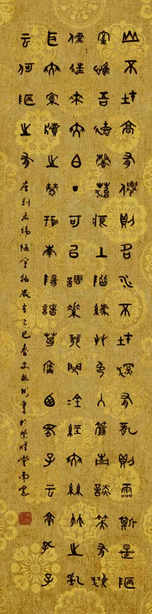 山不在高有僊則名水不在深有龍則靈斯是陋
室惟吾德馨苔痕上階綠草色入簾青談笑有鴻
儒往來無白丁可以調素琴閱金經無絲竹之亂
耳無案牘之勞形南陽諸葛廬西蜀子雲亭孔子
云何陋之有
唐劉禹錫陋室銘 乙巳春